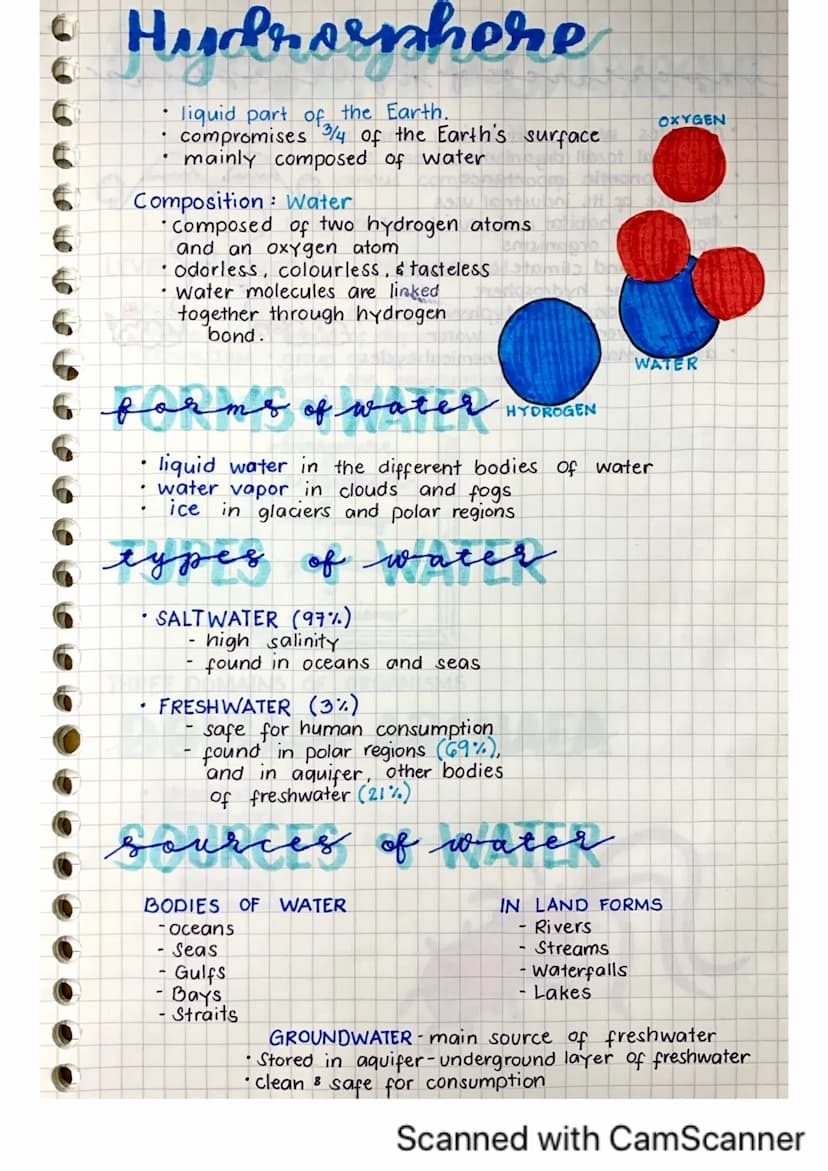 Hydrosphere
• liquid part of the Earth.
• compromises 3/4 of the Earth's surface
• mainly composed of water
OXYGEN
Composition: Water
• composed of two hydrogen atoms
and an oxygen atom
• odorless, colourless, & tasteless
• water molecules are linked
together through hydrogen
bond.
WATER
HYDROGEN
forms of water
• liquid water in the different bodies of water
• water vapor in clouds and fogs
• ice in glaciers and polar regions
types of water
• SALTWATER (97%)
- high salinity
- found in oceans and seas
• FRESHWATER (3%)
- safe for human consumption
- found in polar regions (69%),
and in aquifer, other bodies
of freshwater (21%)
sources of water
BODIES OF WATER
- oceans
- Seas
- Gulfs
- Bays
- Straits
IN LAND FORMS
- Rivers
- Streams
- Waterfalls
- Lakes
GROUNDWATER - main source of freshwater
• Stored in aquifer - underground layer of freshwater
• clean & safe for consumption
Scanned with CamScanner